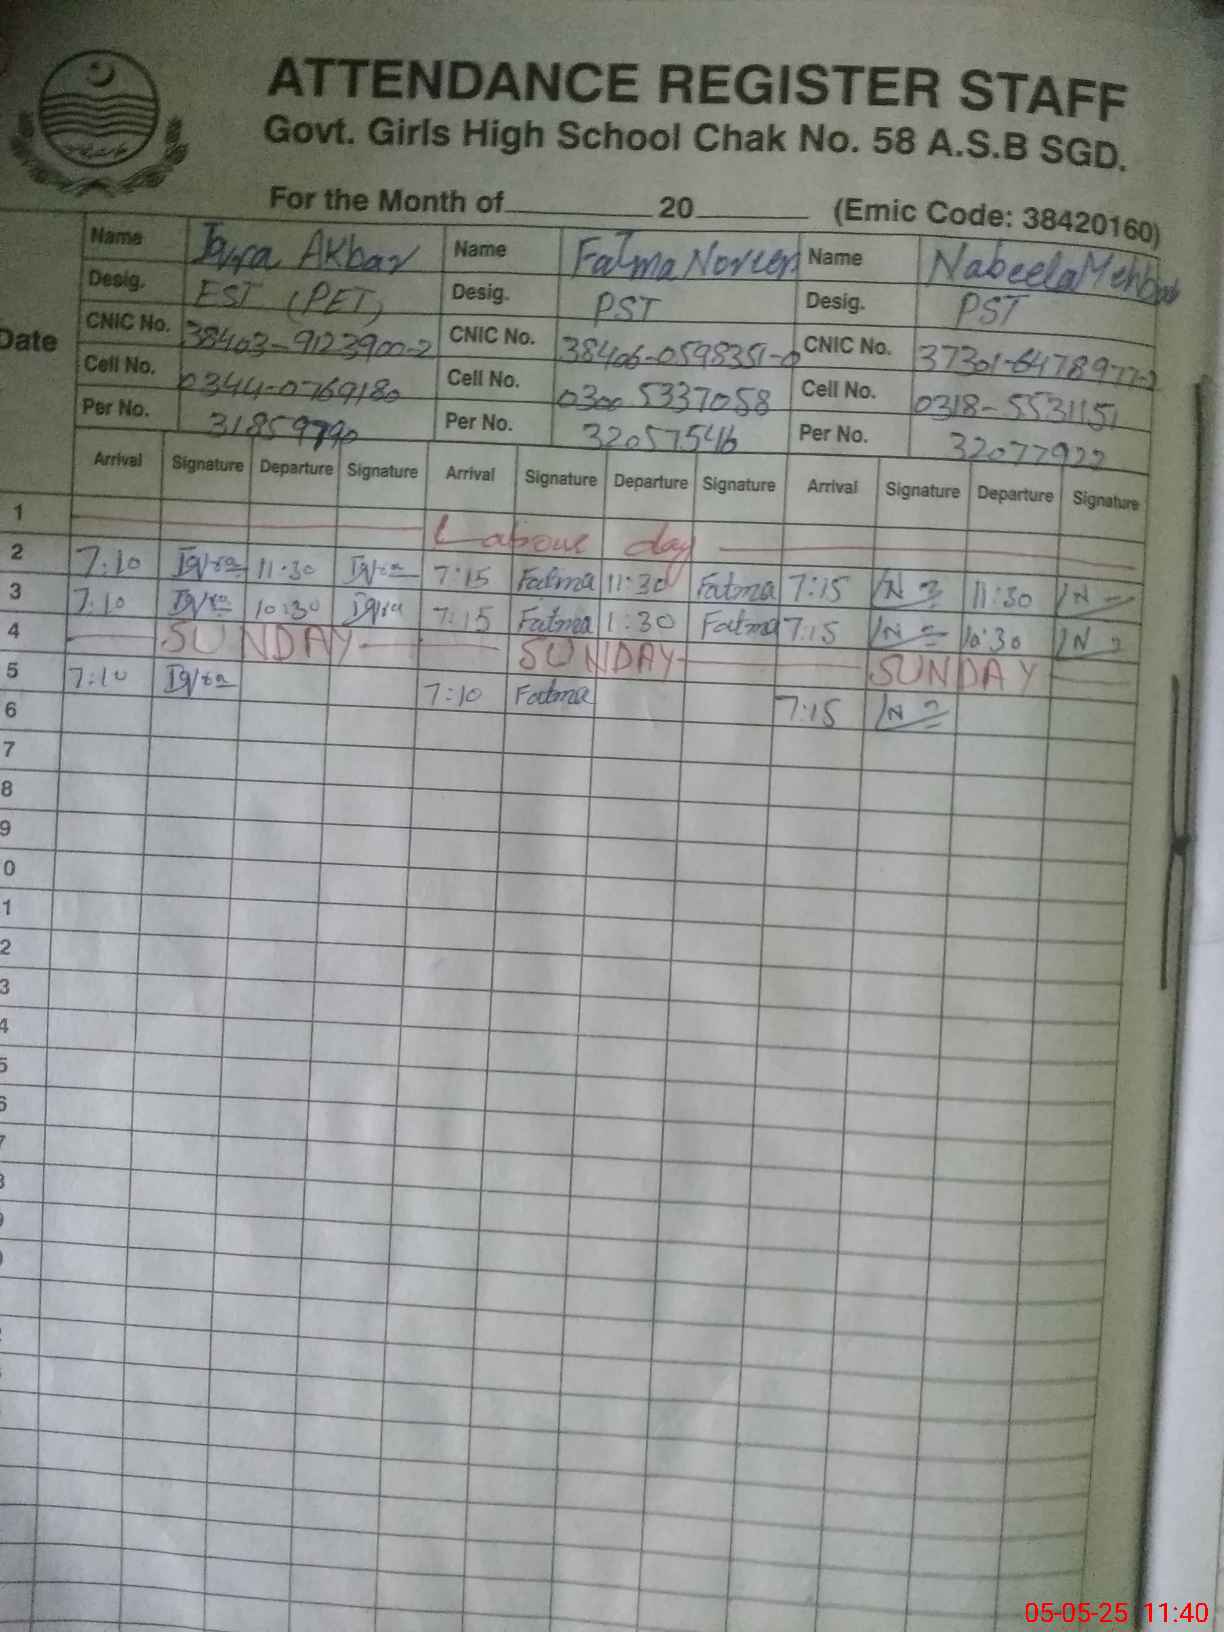 ATTENDANCE REGISTER STAFF
Govt. Girls High School Chak No. 58 A.S.B SGD.
For the Month of 20 (Emic Code: 38420160)
Date
Name Iqra Akbar Name Fatma Noreen Name Nabeela Mehboob
Desig. EST (PET) Desig. PST Desig. PST
CNIC No. 38403-9123900-2 CNIC No. 38406-0598351-0 CNIC No. 37301-6478977-
Cell No. 0344-0769180 Cell No. 0300 5337058 Cell No. 0318-5531151
Per No. Per No. 32057546 Per No. 32077922
Arrival Signature Departure Signature Arrival Signature Departure Signature Arrival Signature Departure Signature
1 Labour day
2 7:10 Iqra 11:30 Iqra 7:15 Fatma 11:30 Fatma 7:15 N 11:30 N
3 7:10 Iqra 10:30 Iqra 7:15 Fatma 1:30 Fatma 7:15 N 10:30 N
4 SUNDAY SUNDAY SUNDAY
5 7:10 Iqra 7:10 Fatma 7:15 N
6
7
8
9
0
1
2
3
4
5
6
7
8
9
05-05-25 11:40